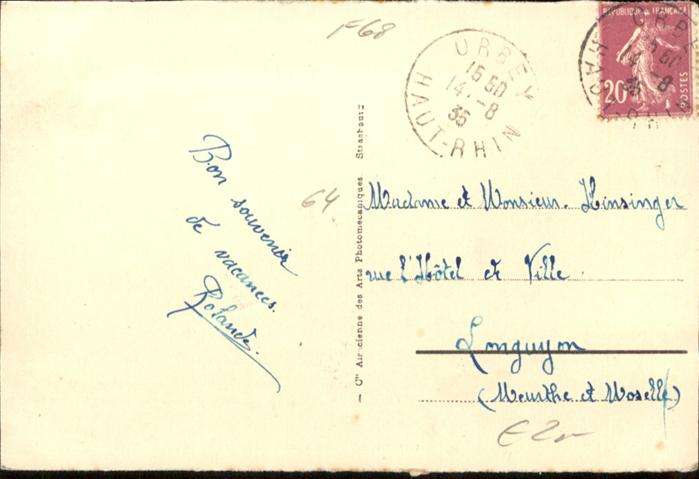 F68
URBEIS
15 50
14 - 8
35
HAUT-RHIN
REPUBLIQUE FRANCAISE
20
POSTES
Bon souvenir
de vacances.
Rolande.
64
— Cie Alsacienne des Arts Photomécaniques Strasbourg
Madame et Monsieur. Kinsinger
rue l'Hôtel de Ville
Longuyon
(Meurthe et Moselle)